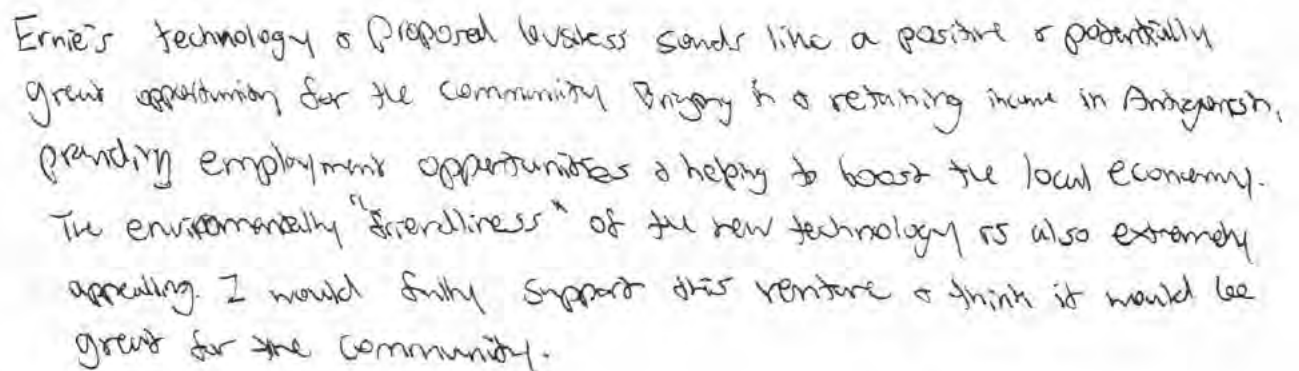 Ernie's technology & Proposed business sounds like a positive & potentially
great opportunity for the community Bringing in & retaining income in Antigonish,
providing employment opportunities & helping to boost the local economy.
The environmentally "friendliness" of the new technology is also extremely
appealing. I would fully support this venture & think it would be
great for the community.